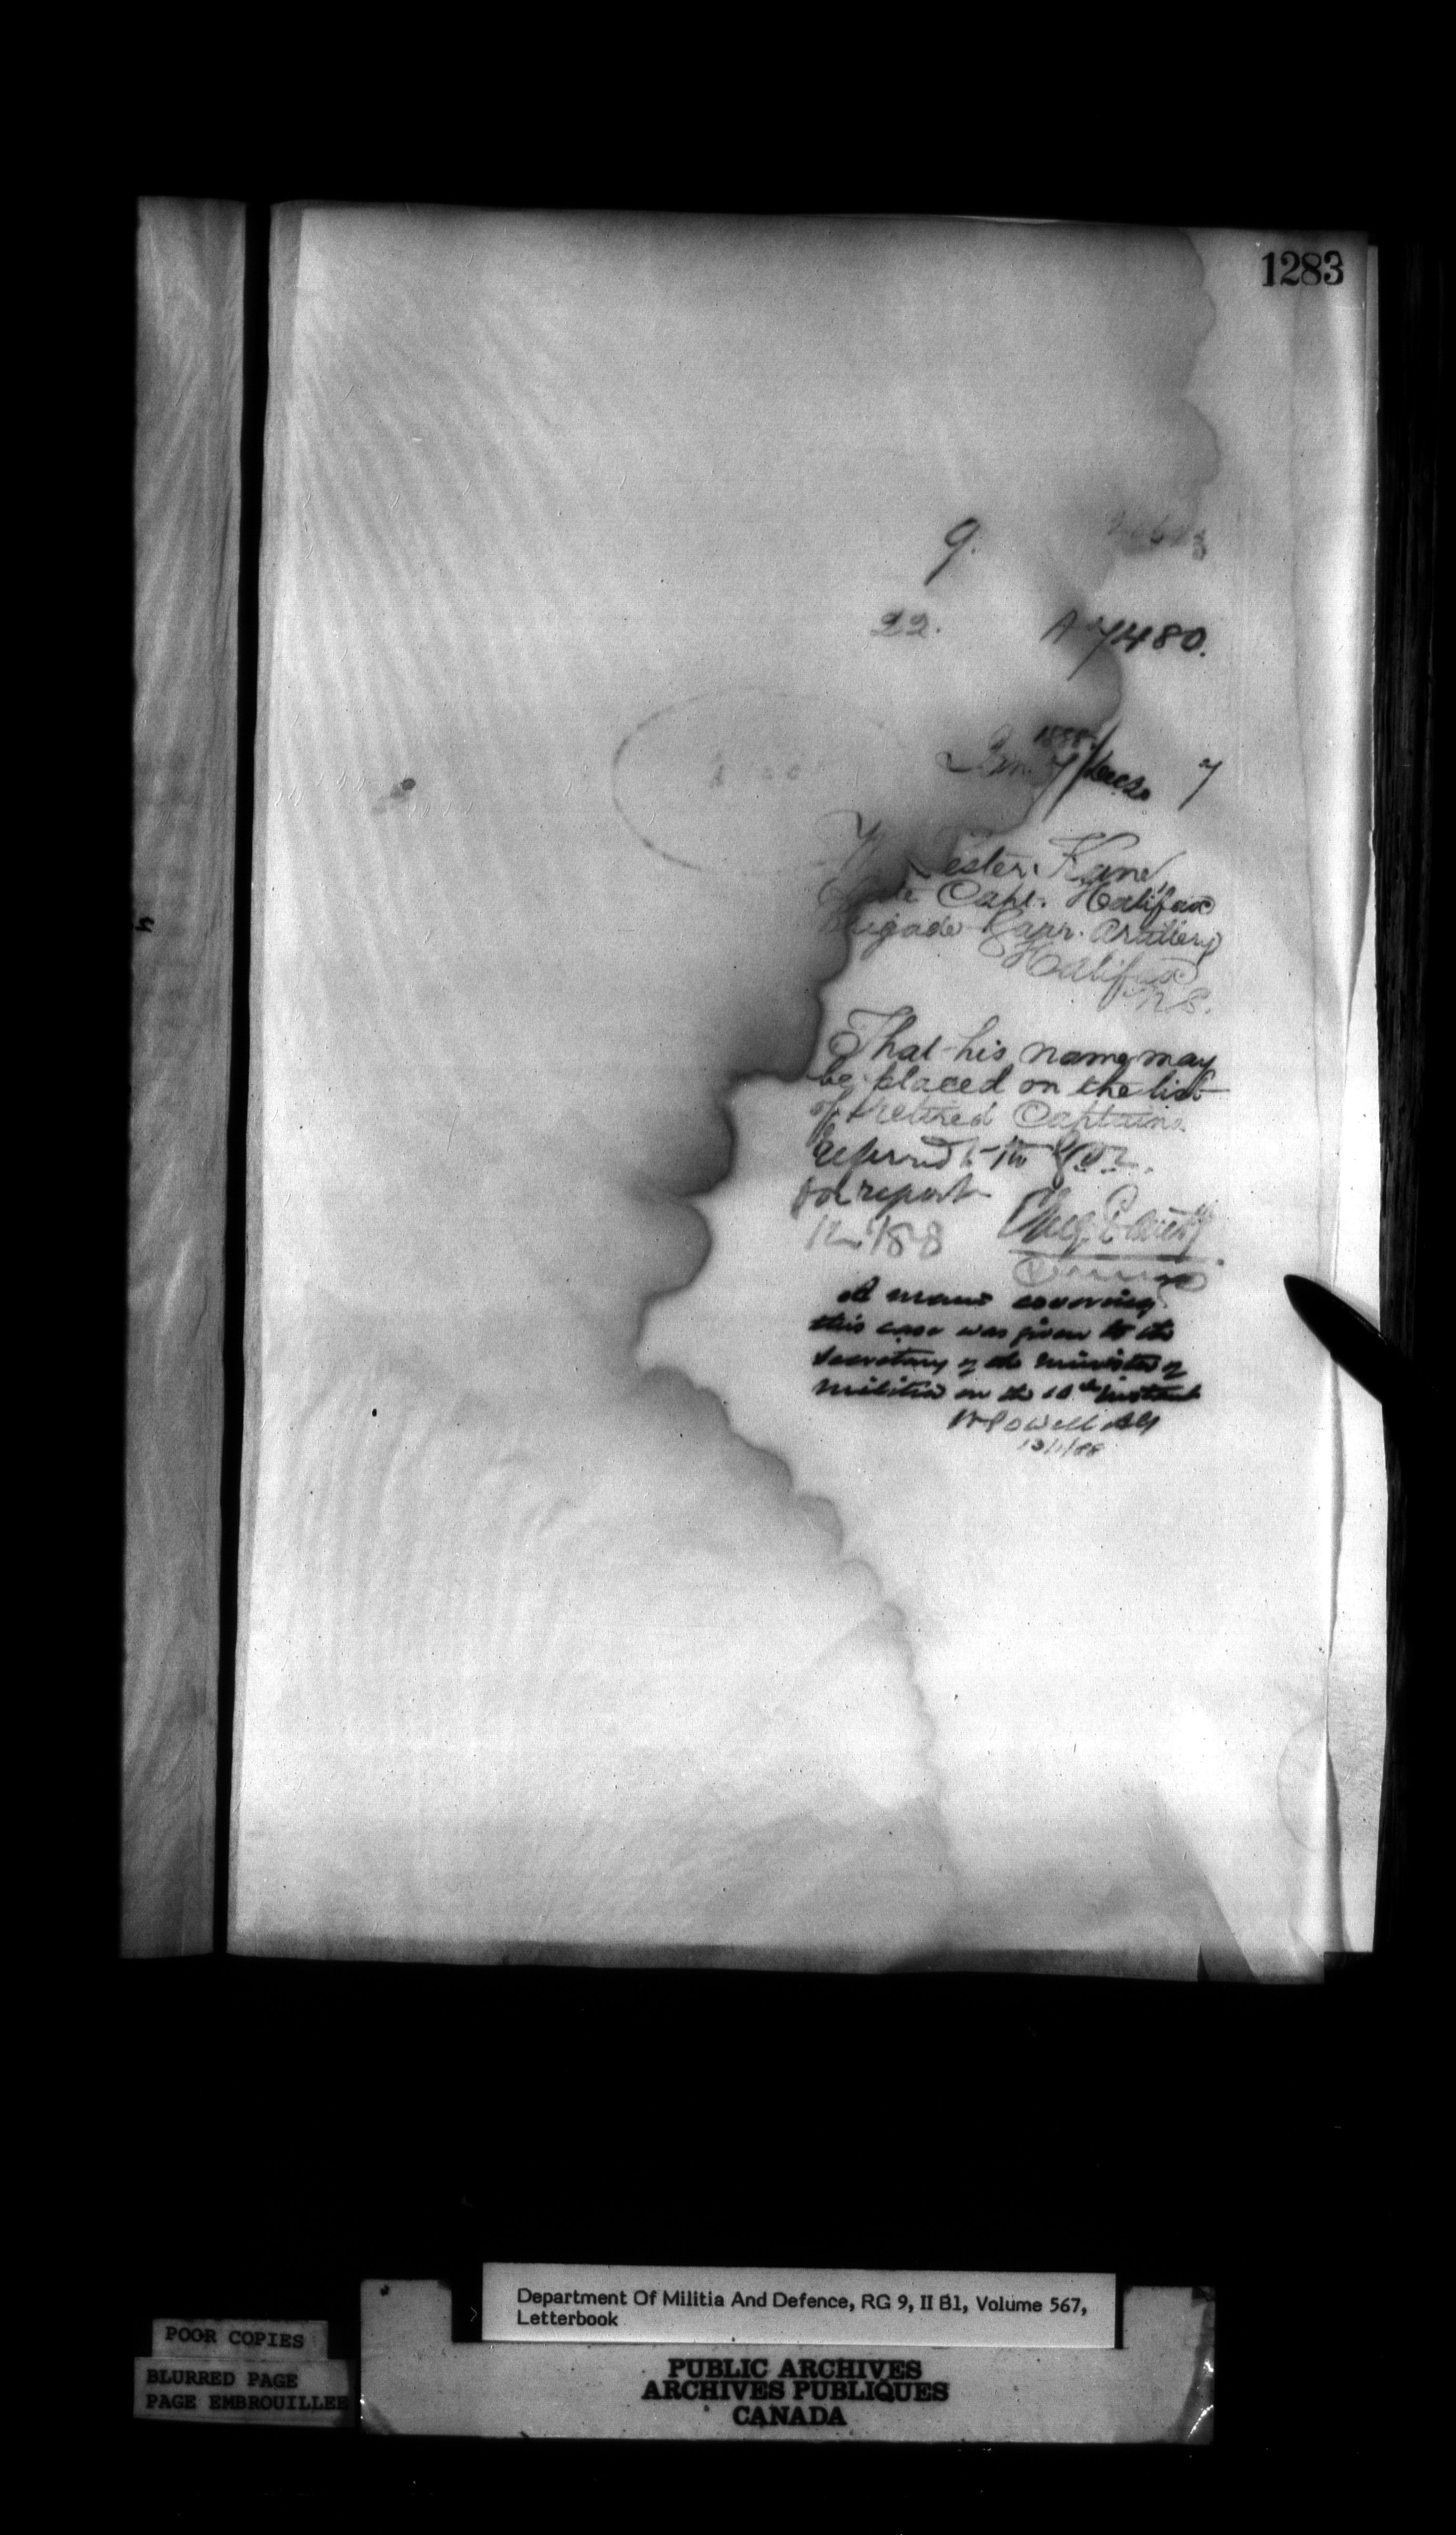 1283
9.
22. A 7480.
1888
Jan. 7 / Decr. 7
Lester Kane
Late Capt. Halifax
Brigade Garr. Artillery
Halifax
N.S.
That his name may
be placed on the list
of retired Captains.
Referred to the
for report
12/1/88
A memo covering
this case was given to the
Secretary of the Minister of
Militia on the 10th instant
W Powell AG
13/1/88
Department Of Militia And Defence, RG 9, II B1, Volume 567,
Letterbook
POOR COPIES
BLURRED PAGE
PAGE EMBROUILLEE
PUBLIC ARCHIVES
ARCHIVES PUBLIQUES
CANADA